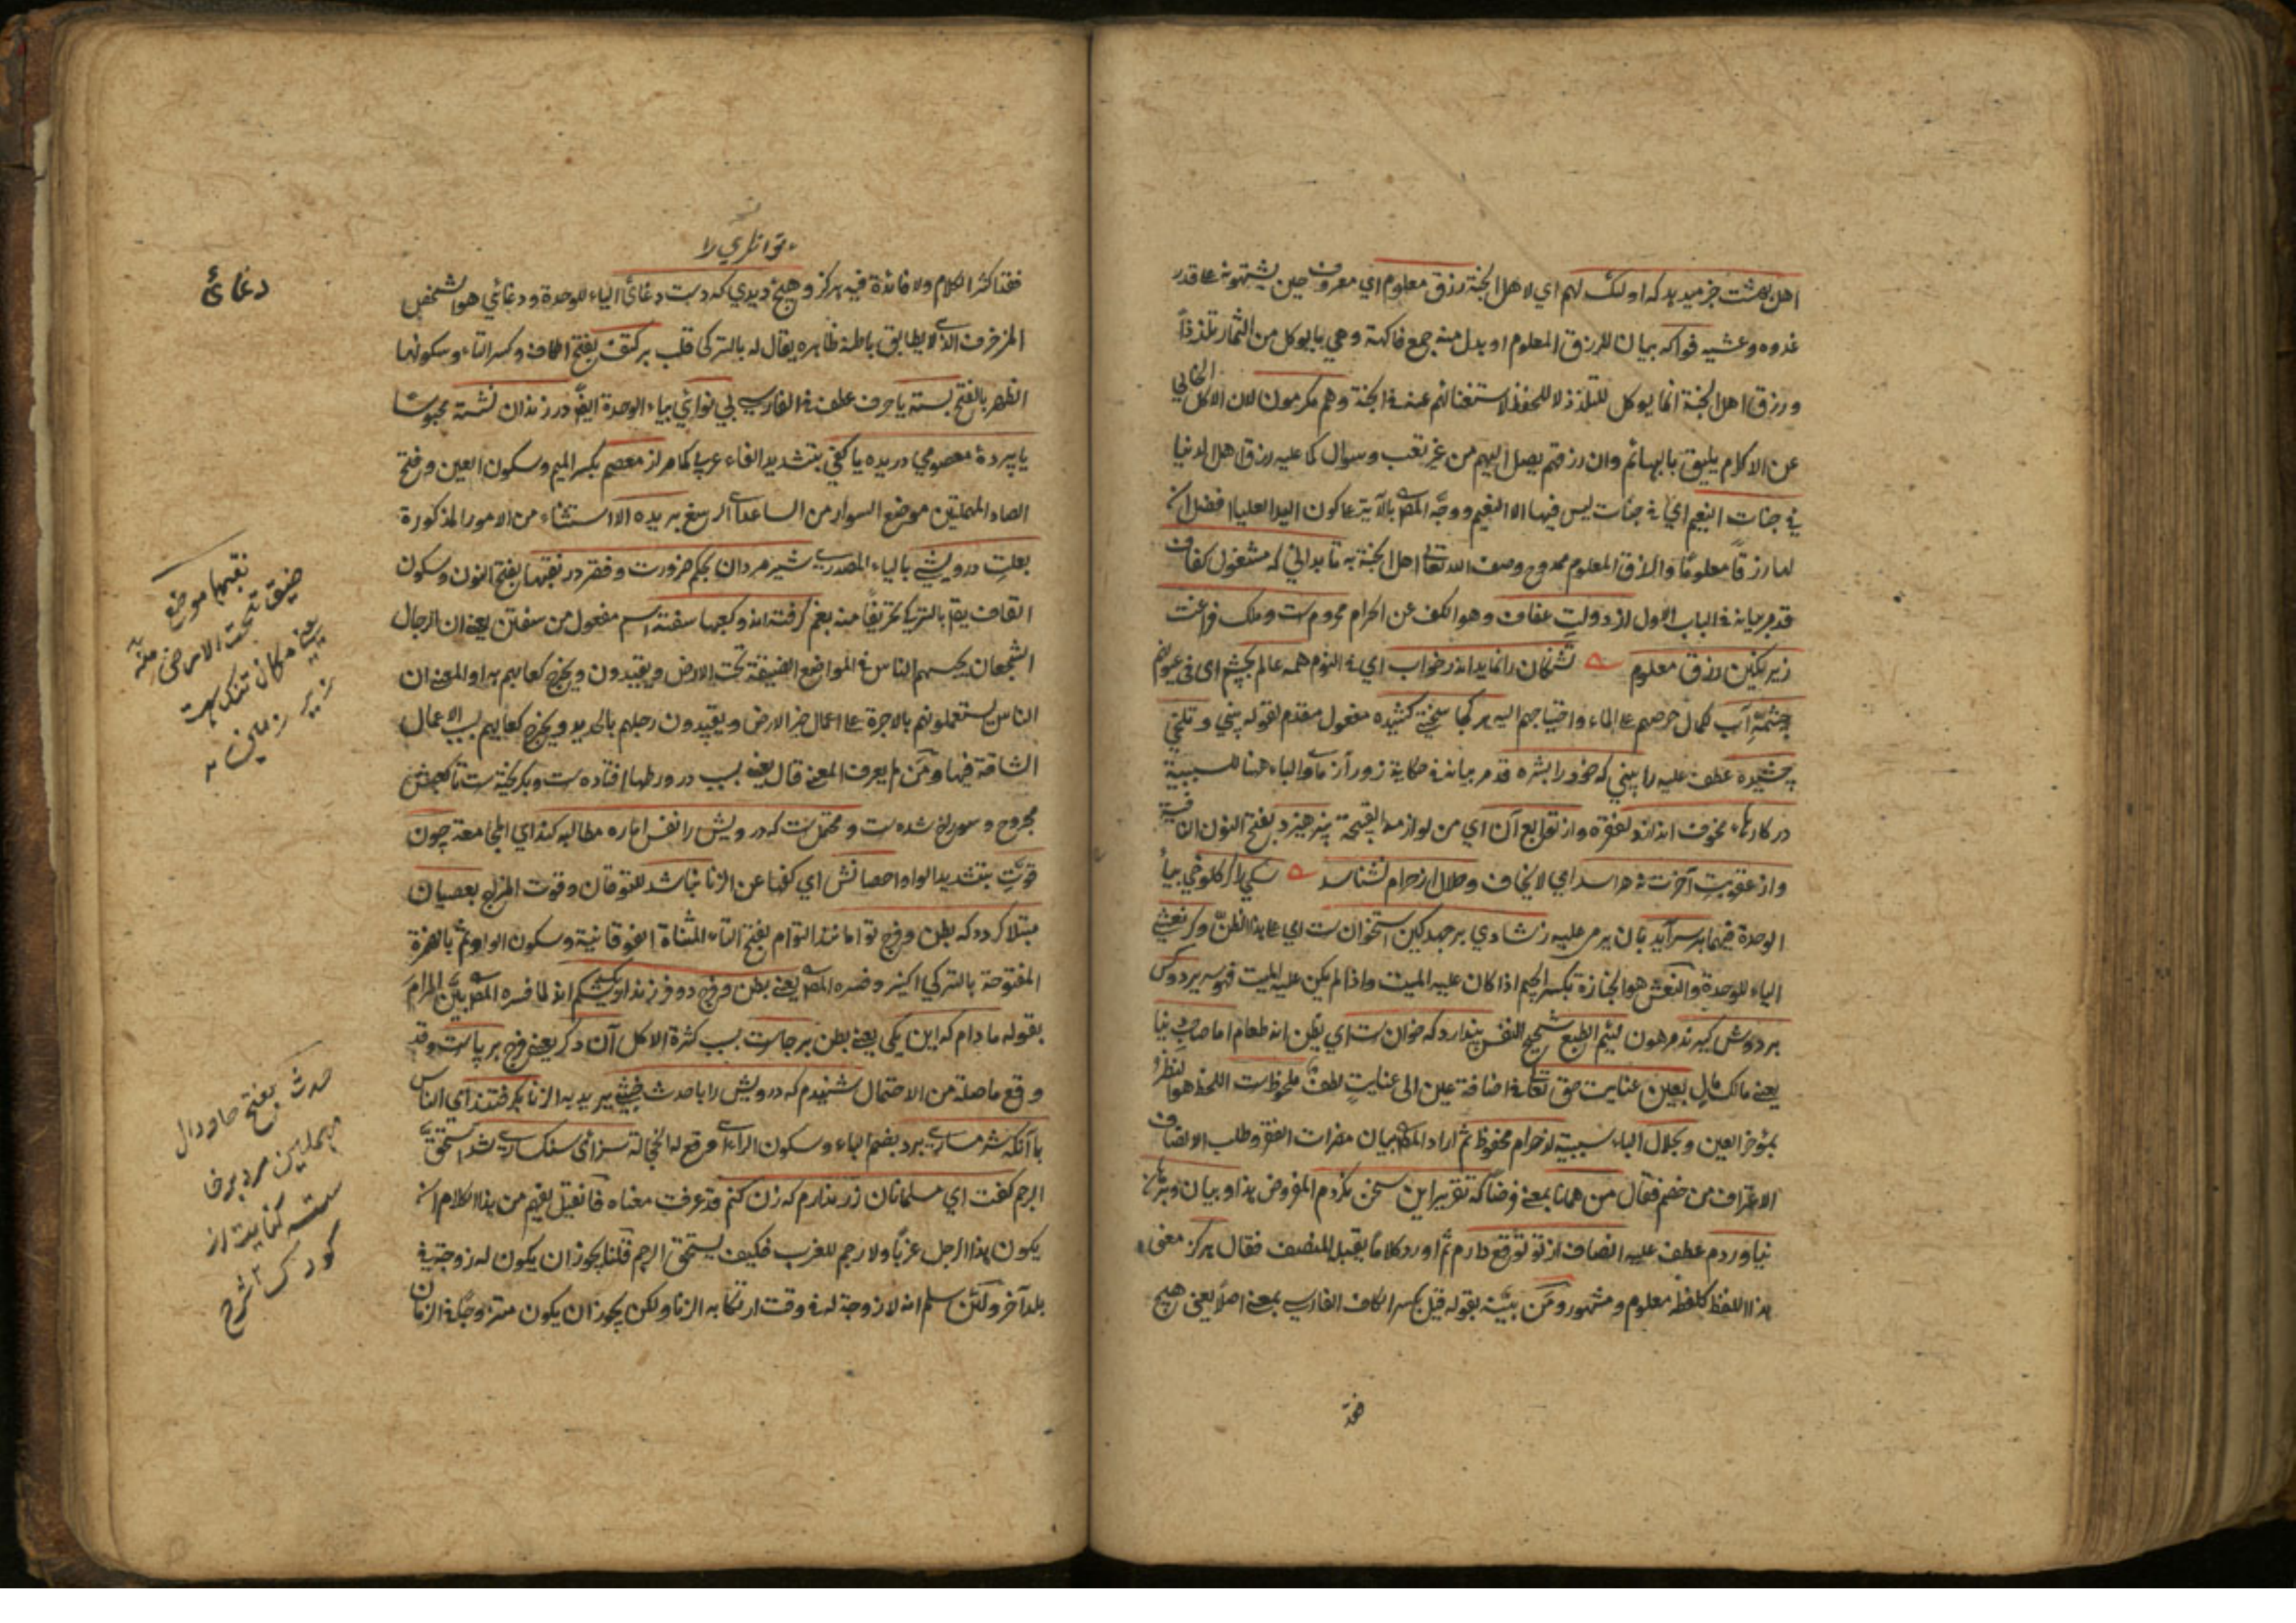 اهل بهشت خبر میدهد که اولئک لهم ای لاهل الجنة رزق معلوم ای معروف حین یشتهونه علی قدر
غدوه وعشیه فواکه بیان للرزق المعلوم او بدل منه جمع فاکهة وهی ما یوکل من الثمار تلذذاً
ورزق اهل الجنة انما یوکل للتلذذ لا للحفظ لاستغنائهم عنه فی الجنة وهم مکرمون لان الاکل الخالی
عن الاکرام یلیق بالبهائم وان رزقهم یصل الیهم من غیر تعب وسوال کما علیه رزق اهل الدنیا
فی جنات النعیم ای فی جنات لیس فیها الا النعیم ووجه المص بالآیة علی کون الید العلیا افضل ان
لها رزقاً معلوماً والرزق المعلوم ممدوح وصف الله تعالی اهل الجنة به تا بدانی که مشغول کفاف
قد مر بیانه فی الباب الاول از دولت عفاف وهو الکف عن الحرام محروم ست وملک فراغت
زیر نکین رزق معلوم تشنکان را نماید اندر خواب ای فی النوم همه عالم بچشم ای فی عیونهم
چشمۀ آب لکمال حرصهم علی الماء واحتیاجهم الیه هر کجا سختی کشیده مفعول مقدم لقوله بینی و تلخی
چشیده عطف علیه را بینی که خود را بشره قد مر بیانه فی حکایة زور آزمای والباء هنا للسببیة
در کارهای مخوف اندازد لفقره واز توابع آن ای من لوازمه القبیحة نپرهیزد بفتح النون النافیة
واز عقوبت آخرت نهراسد ای لا یخاف وحلال از حرام نشناسد سکی را کر کلوخی بیاء
الوحدة فیهما بر سر آید بان یرمی علیه ز شادی بر جهد کین استخوان ست ای علی هذا الظن وکر نعشی
الیاء للوحدة والنعش هو الجنازة بکسر الجیم اذا کان علیه المیت واذا لم یکن علیه المیت فهو سریر دو کس
بر دوش کیرند مرهون لئیم الطبع شحیح النفس پندارد که خوان ست ای یظن انه طعام اما صاحب دنیا
یعنی مالک مال بعین عنایت حق تعالی فی اضافة عین الی عنایت لطف ملحوظ ست اللحظ هو النظر
بمؤخر العین وبحلال الباء سببیة از حرام محفوظ ثم اراد المص بیان مضرات الفقر وطلب الانصاف
الاعتراف من خصمه فقال من همانا بمعنی فرضاً که تقریر این سخن نکردم المفروض هذا وبیان وبرهان
نیاوردم عطف علیه انصاف از تو توقع دارم ثم اورد کلاماً یقبل المنصف فقال هرکز معنی
هذا اللفظ کلفظه معلوم ومشهور ومن بینه بقوله قیل بکسر الکاف الفارسی بمعنی اصلاً یعنی هیچ
فقد
توانکری را
فقد اکثر الکلام ولا فائدة فیه هرکز وهیچ دیدی که دست دغائی الیاء للوحدة ودغائی هو الشخص
المزخرف الذی لا یطابق باطنه ظاهره یقال له بالترکی قلب بر کتف بفتح الکاف وکسر التاء وسکونها
الظهر بالفتح بسته یا حرف عطف فی الفارسی بی نوائی بیاء الوحدة ایضاً در زندان نشسته محبوساً
یا پردۀ معصومی دریده یا کفی بتشدید الفاء عربی کما مر از معصم بکسر المیم وسکون العین وفتح
الصاد المهملتین موضع السوار من الساعد ای الرسغ بریده الا استثناء من الامور المذکورة
بعلت درویشی بالیاء المصدری شیر مردان بحکم ضرورت وفقر در نقبها بفتح النون وسکون
القاف یقال بالترکی تحریفاً منه لغم کرفته اند وکعبها سفته اسم مفعول من سفتن یعنی ان الرجال
الشجعان یحبسهم الناس فی المواضع الضیقة تحت الارض ویقیدون ویخرج کعابهم به او المعنی ان
الناس یستعملونهم بالاجرة علی اعمال حفر الارض ویقیدون رجلهم بالحدید ویخرج کعابهم بسبب الاعمال
الشاقة فیها ومن لم یعرف المعنی قال یعنی بسبب در ورطها افتاده ست وبکریخته ست تا کعبش
مجروح وسوراخ شده ست ومحتمل ست که درویش را نفس اماره مطالبه کند ای الجماعة چون
قوت بتشدید الواو احصانش ای کفها عن الزنا نباشد للتوقان وقوت المزاج بعصیان
مبتلا کردد که بطن وفرج توامانند التوام بفتح التاء المثناة الفوقانیة وسکون الواو ثم بالهمزة
المفتوحة بالترکی اکیز وفسره المص یعنی بطن وفرج دو فرزند او یک شکم اند لما فسره المص بین المرام
بقوله مادام که این یکی یعنی بطن بر جاست بسبب کثرة الاکل آن دکر یعنی فرج بر پاست وقد
وقع ما صله من الاحتمال شنیدم که درویش را با حدث خبثی یرید به الزنا بکرفتند ای الناس
با آنکه شرمساری برد بضم الباء وسکون الراء ای وقع له الخجالة سزای سنکساری شد استحق
الرجم کفت ای مسلمانان زر ندارم که زن کنم قد عرفت معناه فان قیل یفهم من هذا الکلام انه
یکون هذا الرجل عزباً ولا رجم للعزب فکیف یستحق الرجم قلنا یجوز ان یکون له زوجة فی
بلد آخر ولئن سلم انه لا زوجة له فی وقت ارتکابه الزنا ولکن یجوز ان یکون متزوجاً فی الزمان
دغائی
نقبها موضع
ضیق تحت الارض
یعنی مکان تنک
زیر زمین
حدث بفتح حا ودال
مهملتین مرد برنا
ست کنایت از
کودک شرح